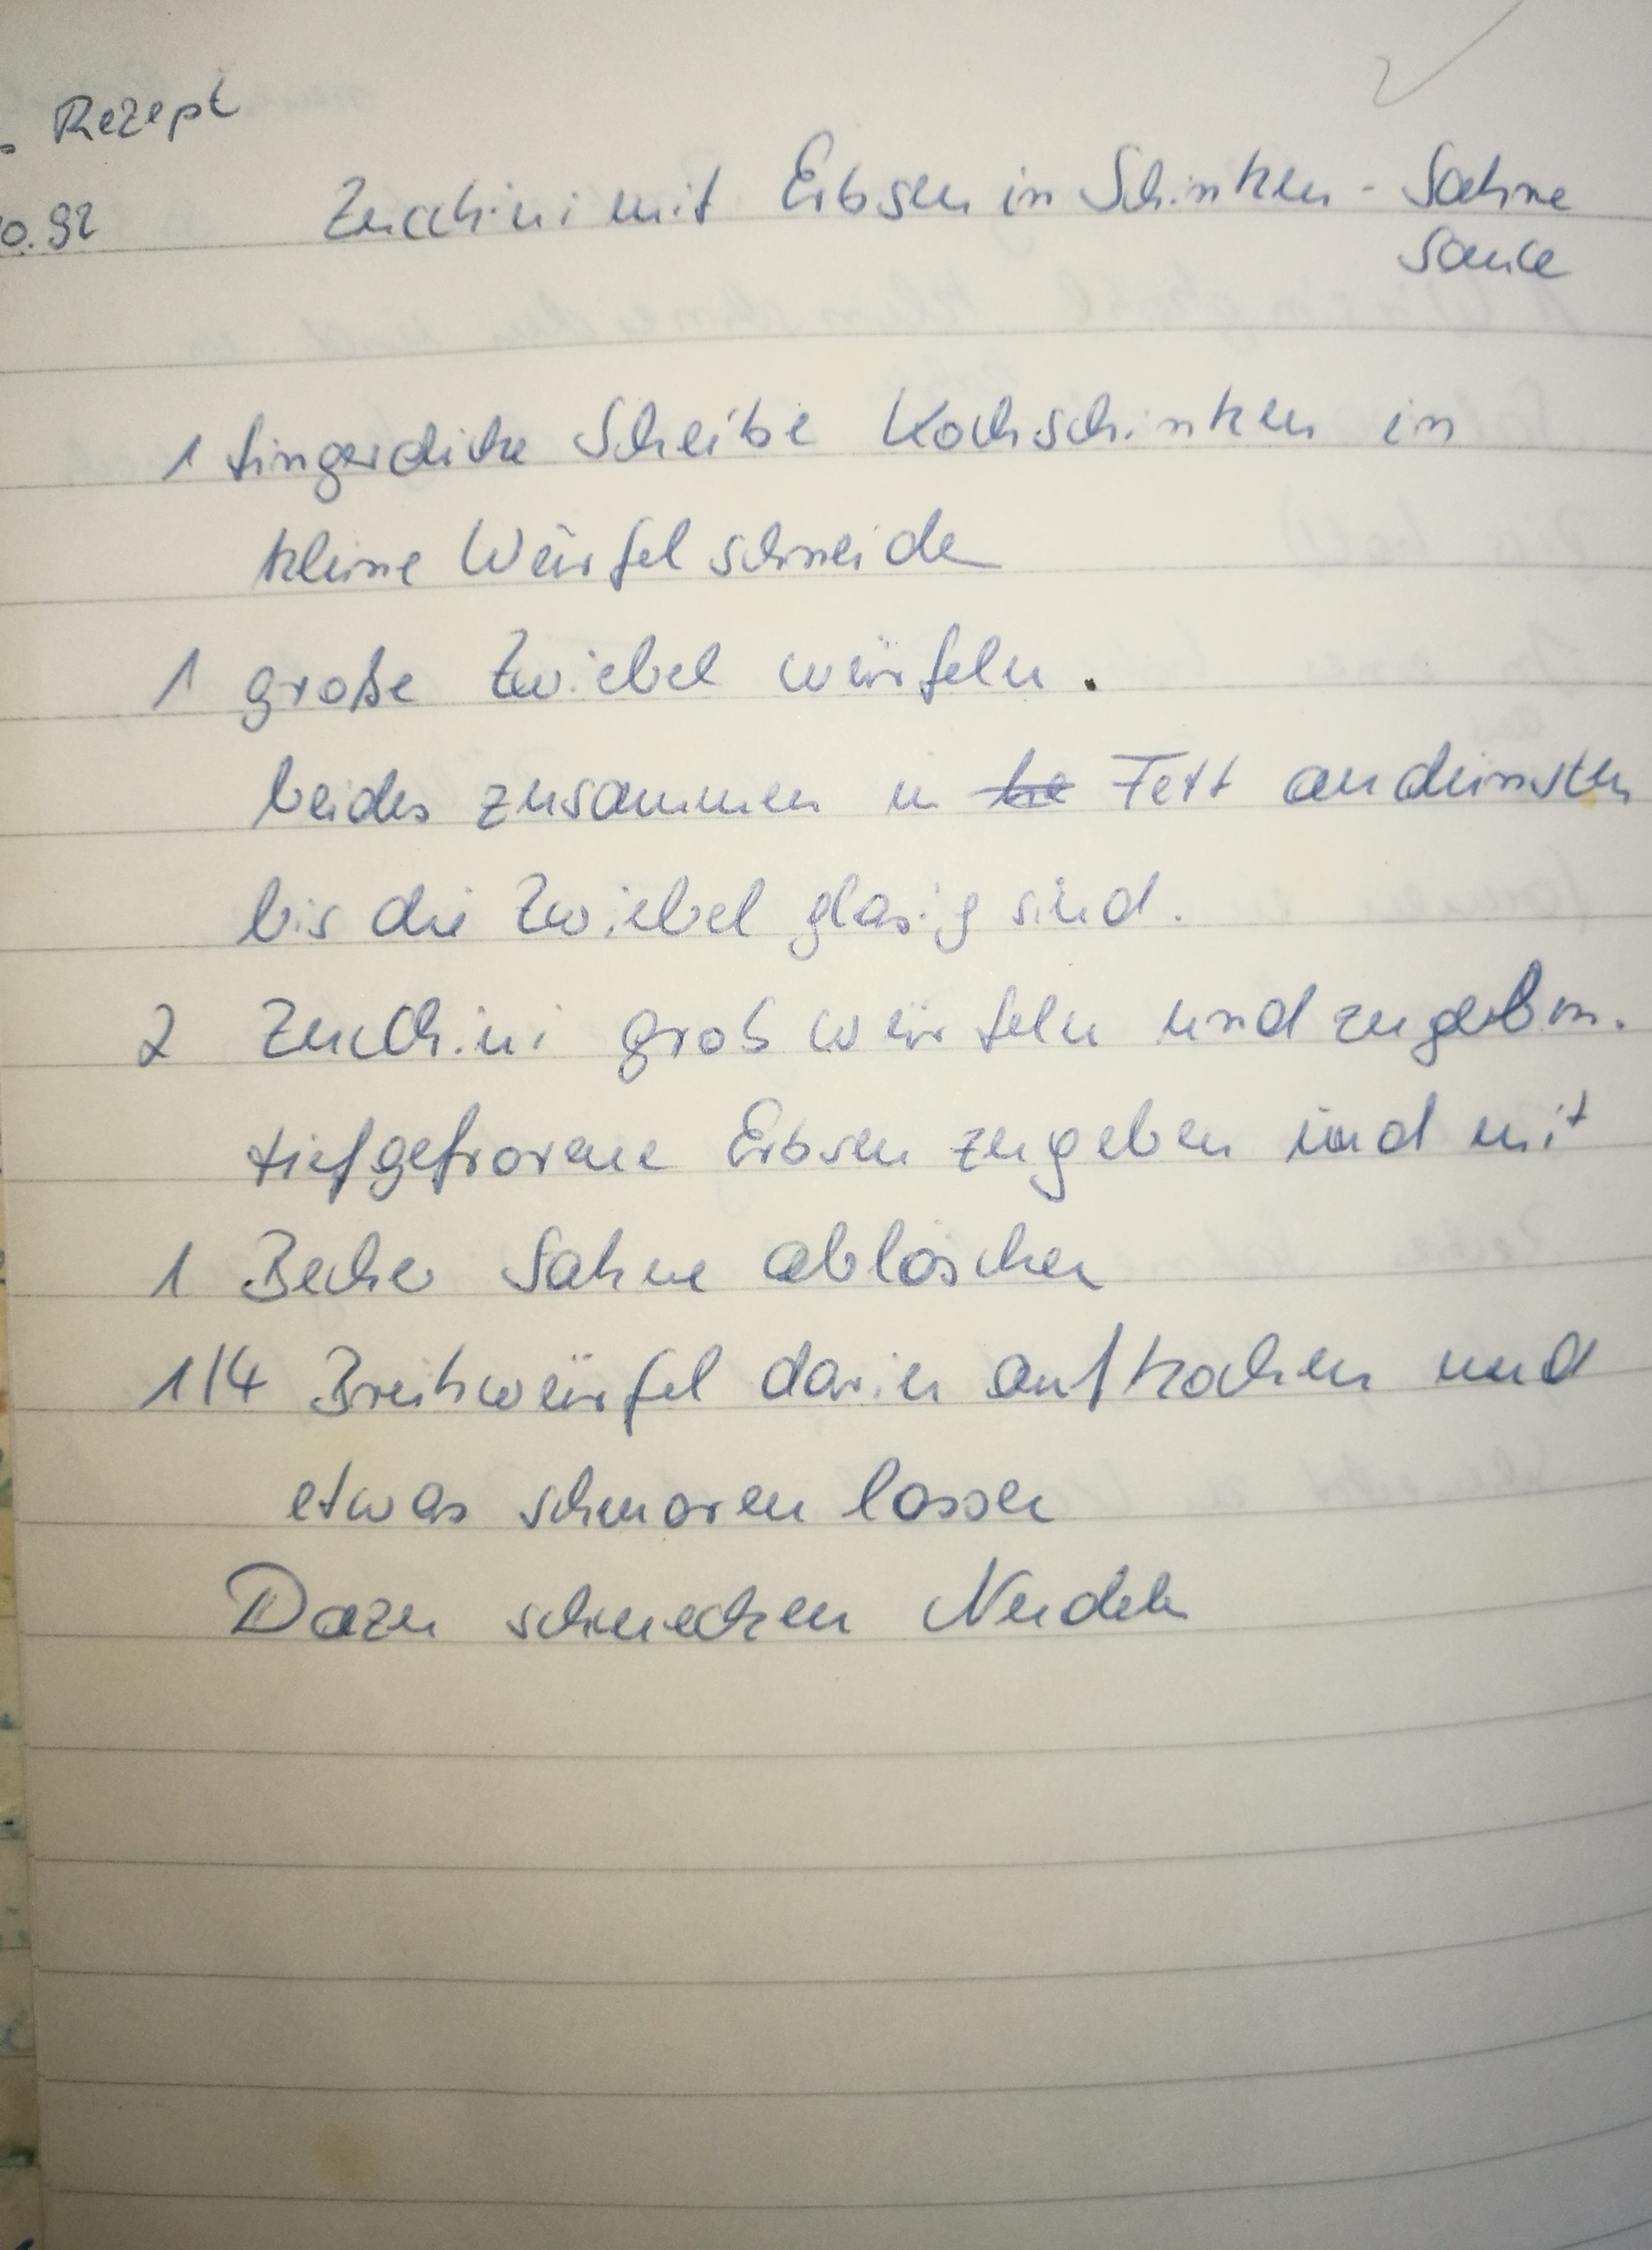 . Rezept
0.92
Zucchini mit Erbsen in Schinken - Sahne
Sauce
1 fingerdicke Scheibe Kochschinken in
kleine Würfel schneiden
1 große Zwiebel würfeln.
beides zusammen in Fett andünsten
bis die Zwiebel glasig sind.
2 Zucchini grob würfeln und zugeben.
tiefgefrorene Erbsen zugeben und mit
1 Becher Sahne ablöschen
1/4 Brühwürfel darin aufkochen und
etwas schmoren lassen
Dazu schmecken Nudeln